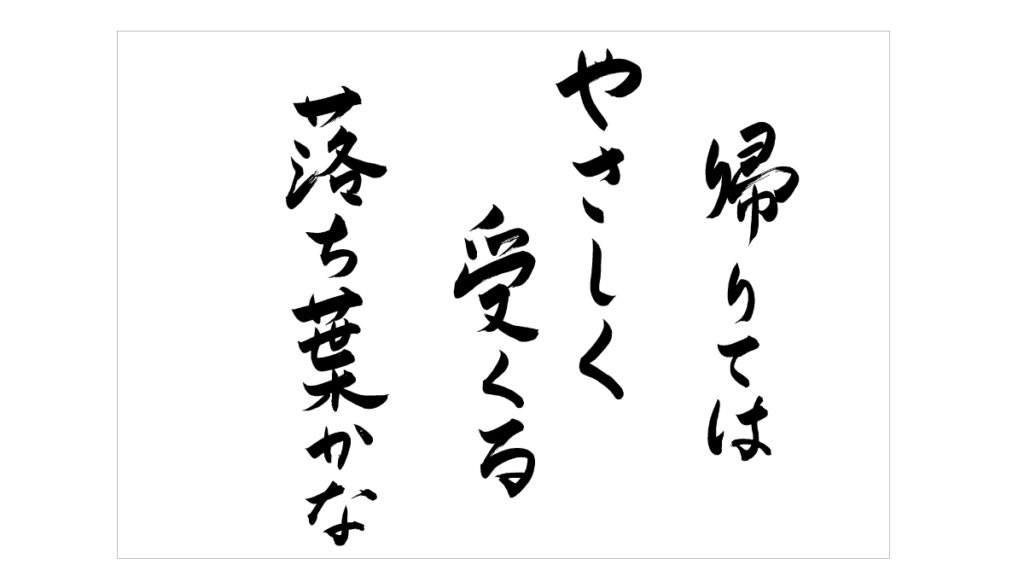 帰りては
やさしく
受くる
落ち葉かな